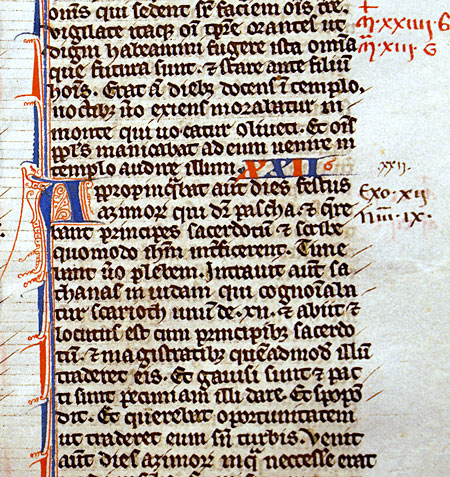 om̄s qui sedent sr̄ faciem oīs t̄re.
vigilate itaq̨ oī tp̄re orantes ut
digni habeamini fugere ista omīa
que futura sunt. ⁊ stare ante filiū
hoīs. Erat aū dieb; docens ī templo.
noctib; ūo exiens morabatur in
monte qui uocatur oliueti. Et oīs
ppl̄s manicabat ad eum uenire in
templo audire illum. XXII
Appropinq̄bat aūt dies festus
azimor qui dr̄ pascha. ⁊ q̄re
bant principes sacerdotū ⁊ scribe
quomodo ih̄m int̄ficerent. Time
bant ūo plebem. Intrauit aūt sa
thanas in iudam qui cognoīaba
tur scarioth unū de .xii. ⁊ abiit ⁊
locutus est cum principib; sacerdo
tū. ⁊ magistratib; quēadmod̄ illū
traderet eis. Et gauisi sunt ⁊ pac
ti sunt pecuniam illi dare. Et spopō
dit. Et querebat oportunitatem
ut traderet eum sn̄ turbis. Venit
aūt dies azimor in q̄ neccesse erat
M. XXIIII G
M. XIII G
xxii.
Exo. XII
nūi. IX.